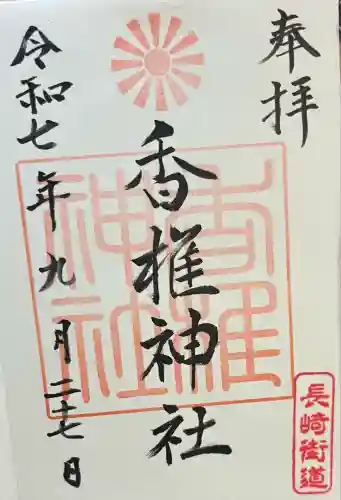 奉拝
香椎神社
令和七年九月二十七日
香椎
神社
長崎街道